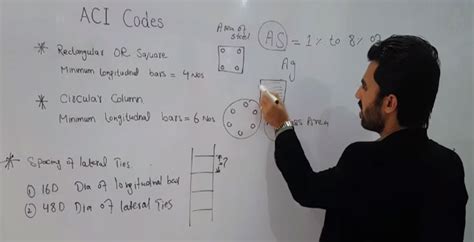 ACI Codes
Area of
steel
* Rectangular OR Square
Minimum longitudnal bars = 4 Nos
AS = 1% to 8% of
Ag
* Circular Column
Minimum longitudnal bars = 6 Nos
Area
* Spacing of lateral Ties
?
① 16D Dia of longitudnal bars
② 48D Dia of lateral Ties